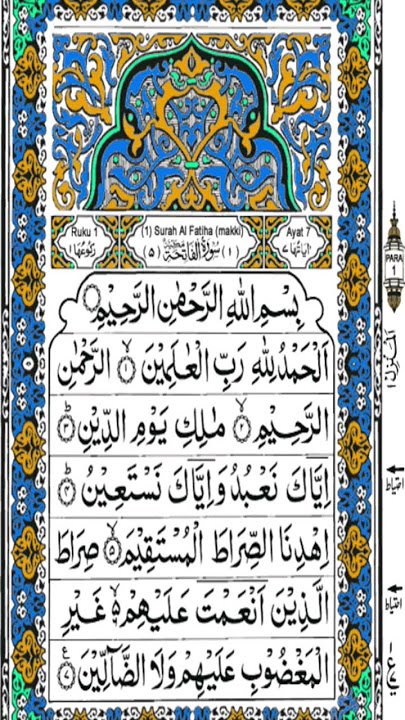 Ruku 1
رکوعها ۱
(1) Surah Al Fatiha (makki)
(۱) سُوْرَةُ الْفَاتِحَةِ مَكِّيَّةٌ (۵)
Ayat 7
اٰیَاتُهَا ۷
بِسْمِ اللّٰهِ الرَّحْمٰنِ الرَّحِیْمِ
اَلْحَمْدُ لِلّٰهِ رَبِّ الْعٰلَمِیْنَ ۙ﴿۱﴾ الرَّحْمٰنِ
الرَّحِیْمِ ۙ﴿۲﴾ مٰلِكِ یَوْمِ الدِّیْنِ ؕ﴿۳﴾
اِیَّاكَ نَعْبُدُ وَ اِیَّاكَ نَسْتَعِیْنُ ؕ﴿۴﴾
اِهْدِنَا الصِّرَاطَ الْمُسْتَقِیْمَ ۙ﴿۵﴾ صِرَاطَ
الَّذِیْنَ اَنْعَمْتَ عَلَیْهِمْ ۙ۬ۥ غَیْرِ
الْمَغْضُوْبِ عَلَیْهِمْ وَلَا الضَّآلِّیْنَ ﴿۷﴾ ع
PARA
1
اَلْمَنْزِلُ ۱
احتیاط
احتیاط